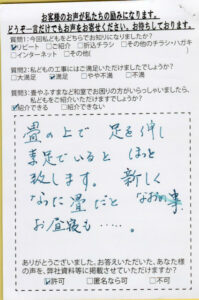 お客様のお声が私たちの励みになります。
どうぞ一言だけでもお声をお寄せください。お待ちしております。
質問1:今回私どもをどちらでお知りになりましたか?
☑リピート □ご紹介 □折込チラシ □その他のチラシ・ハガキ
□インターネット □その他( )
質問2:私どもの工事にはご満足いただけましたでしょうか?
□大満足 ☑満足 □やや不満 □不満
質問3:畳やふすまなど和室でお困りの方がいらっしゃいましたら、
私どもをご紹介いただけますでしょうか?
☑紹介できる □紹介できない
畳の上で 足を伸し
素足でいると ほっと
致します。 新しく
なった畳だと なおの事、
お昼寝も ……。
ありがとうございました。お答えいただいた、あなた様
の声を、弊社資料等に掲載させていただけますか?
☑許可 □匿名なら可 □不可